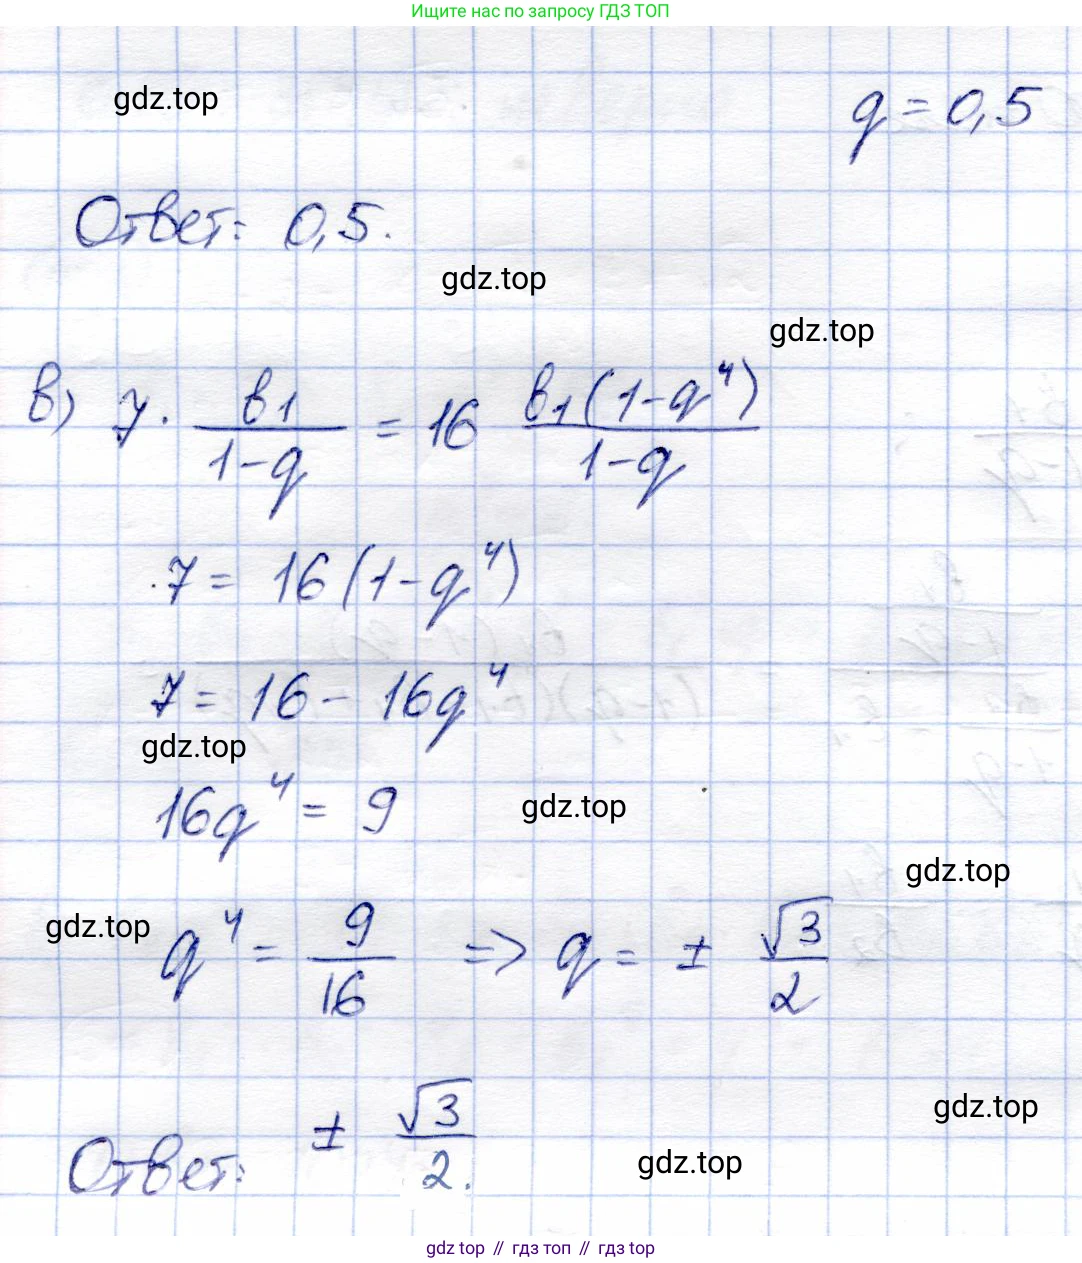 Ищите нас по запросу ГДЗ ТОП
gdz.top
q = 0,5
Ответ: 0,5.
gdz.top
gdz.top
в) 7 · в₁/(1-q) = 16 в₁(1-q⁴)/(1-q)
7 = 16(1-q⁴)
7 = 16 - 16q⁴
gdz.top
16q⁴ = 9
gdz.top
gdz.top
gdz.top
q⁴ = 9/16 => q = ± √3/2
gdz.top
Ответ: ± √3/2.
gdz.top
gdz top // гдз топ // гдз top